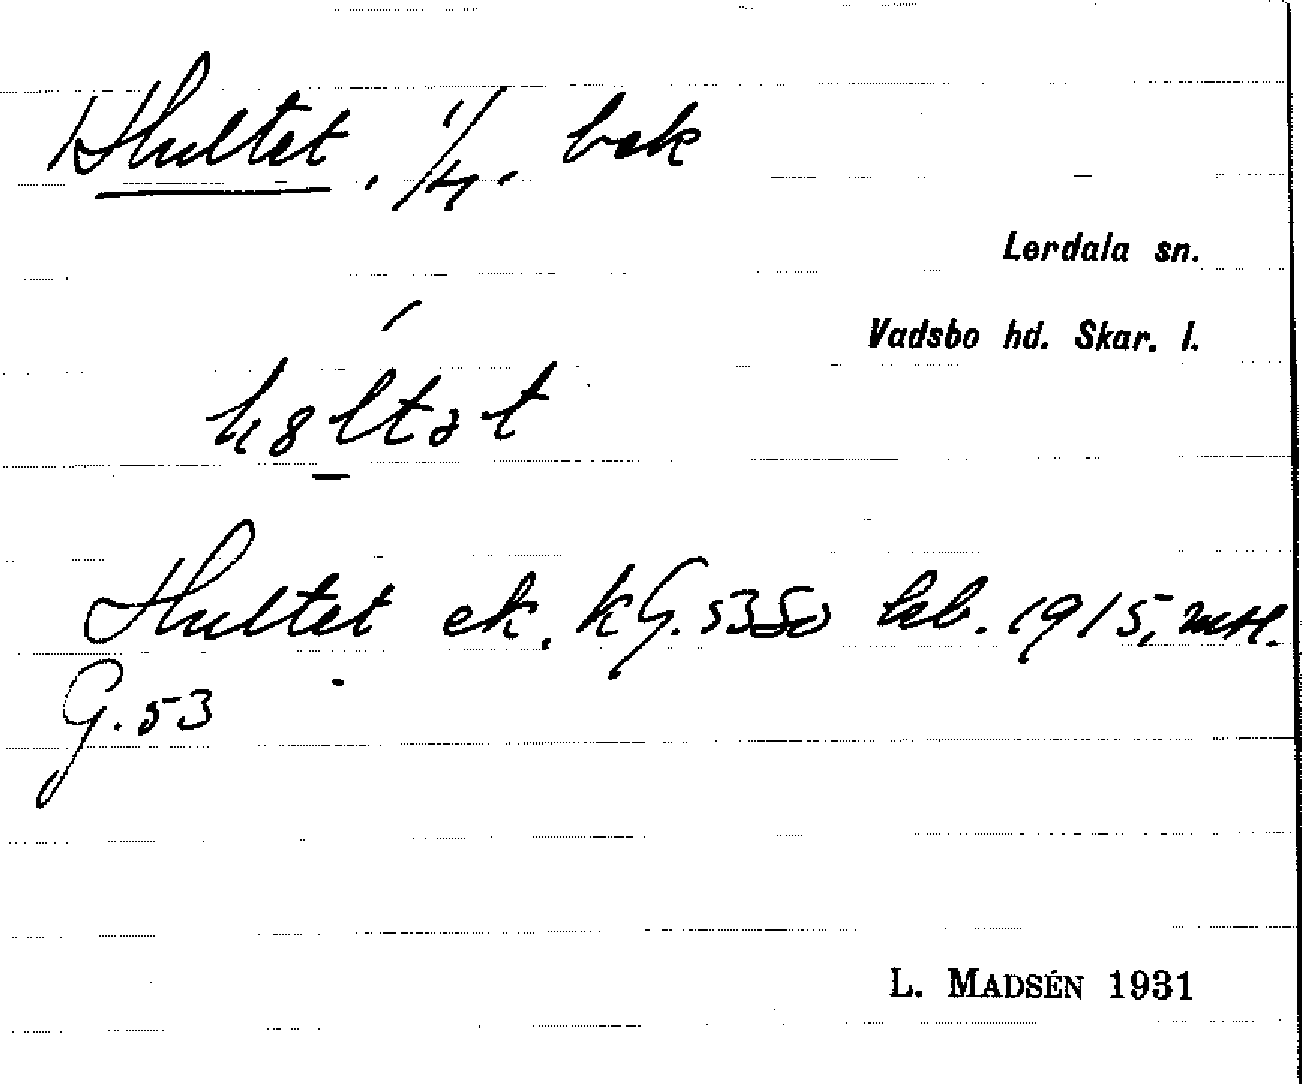 Hultet. 1/4. bek
Lerdala sn.
Vadsbo hd. Skar. l.
Hultet ek. kG. 53 So leb. 1915,
G. 53
L. MADSÉN 1931